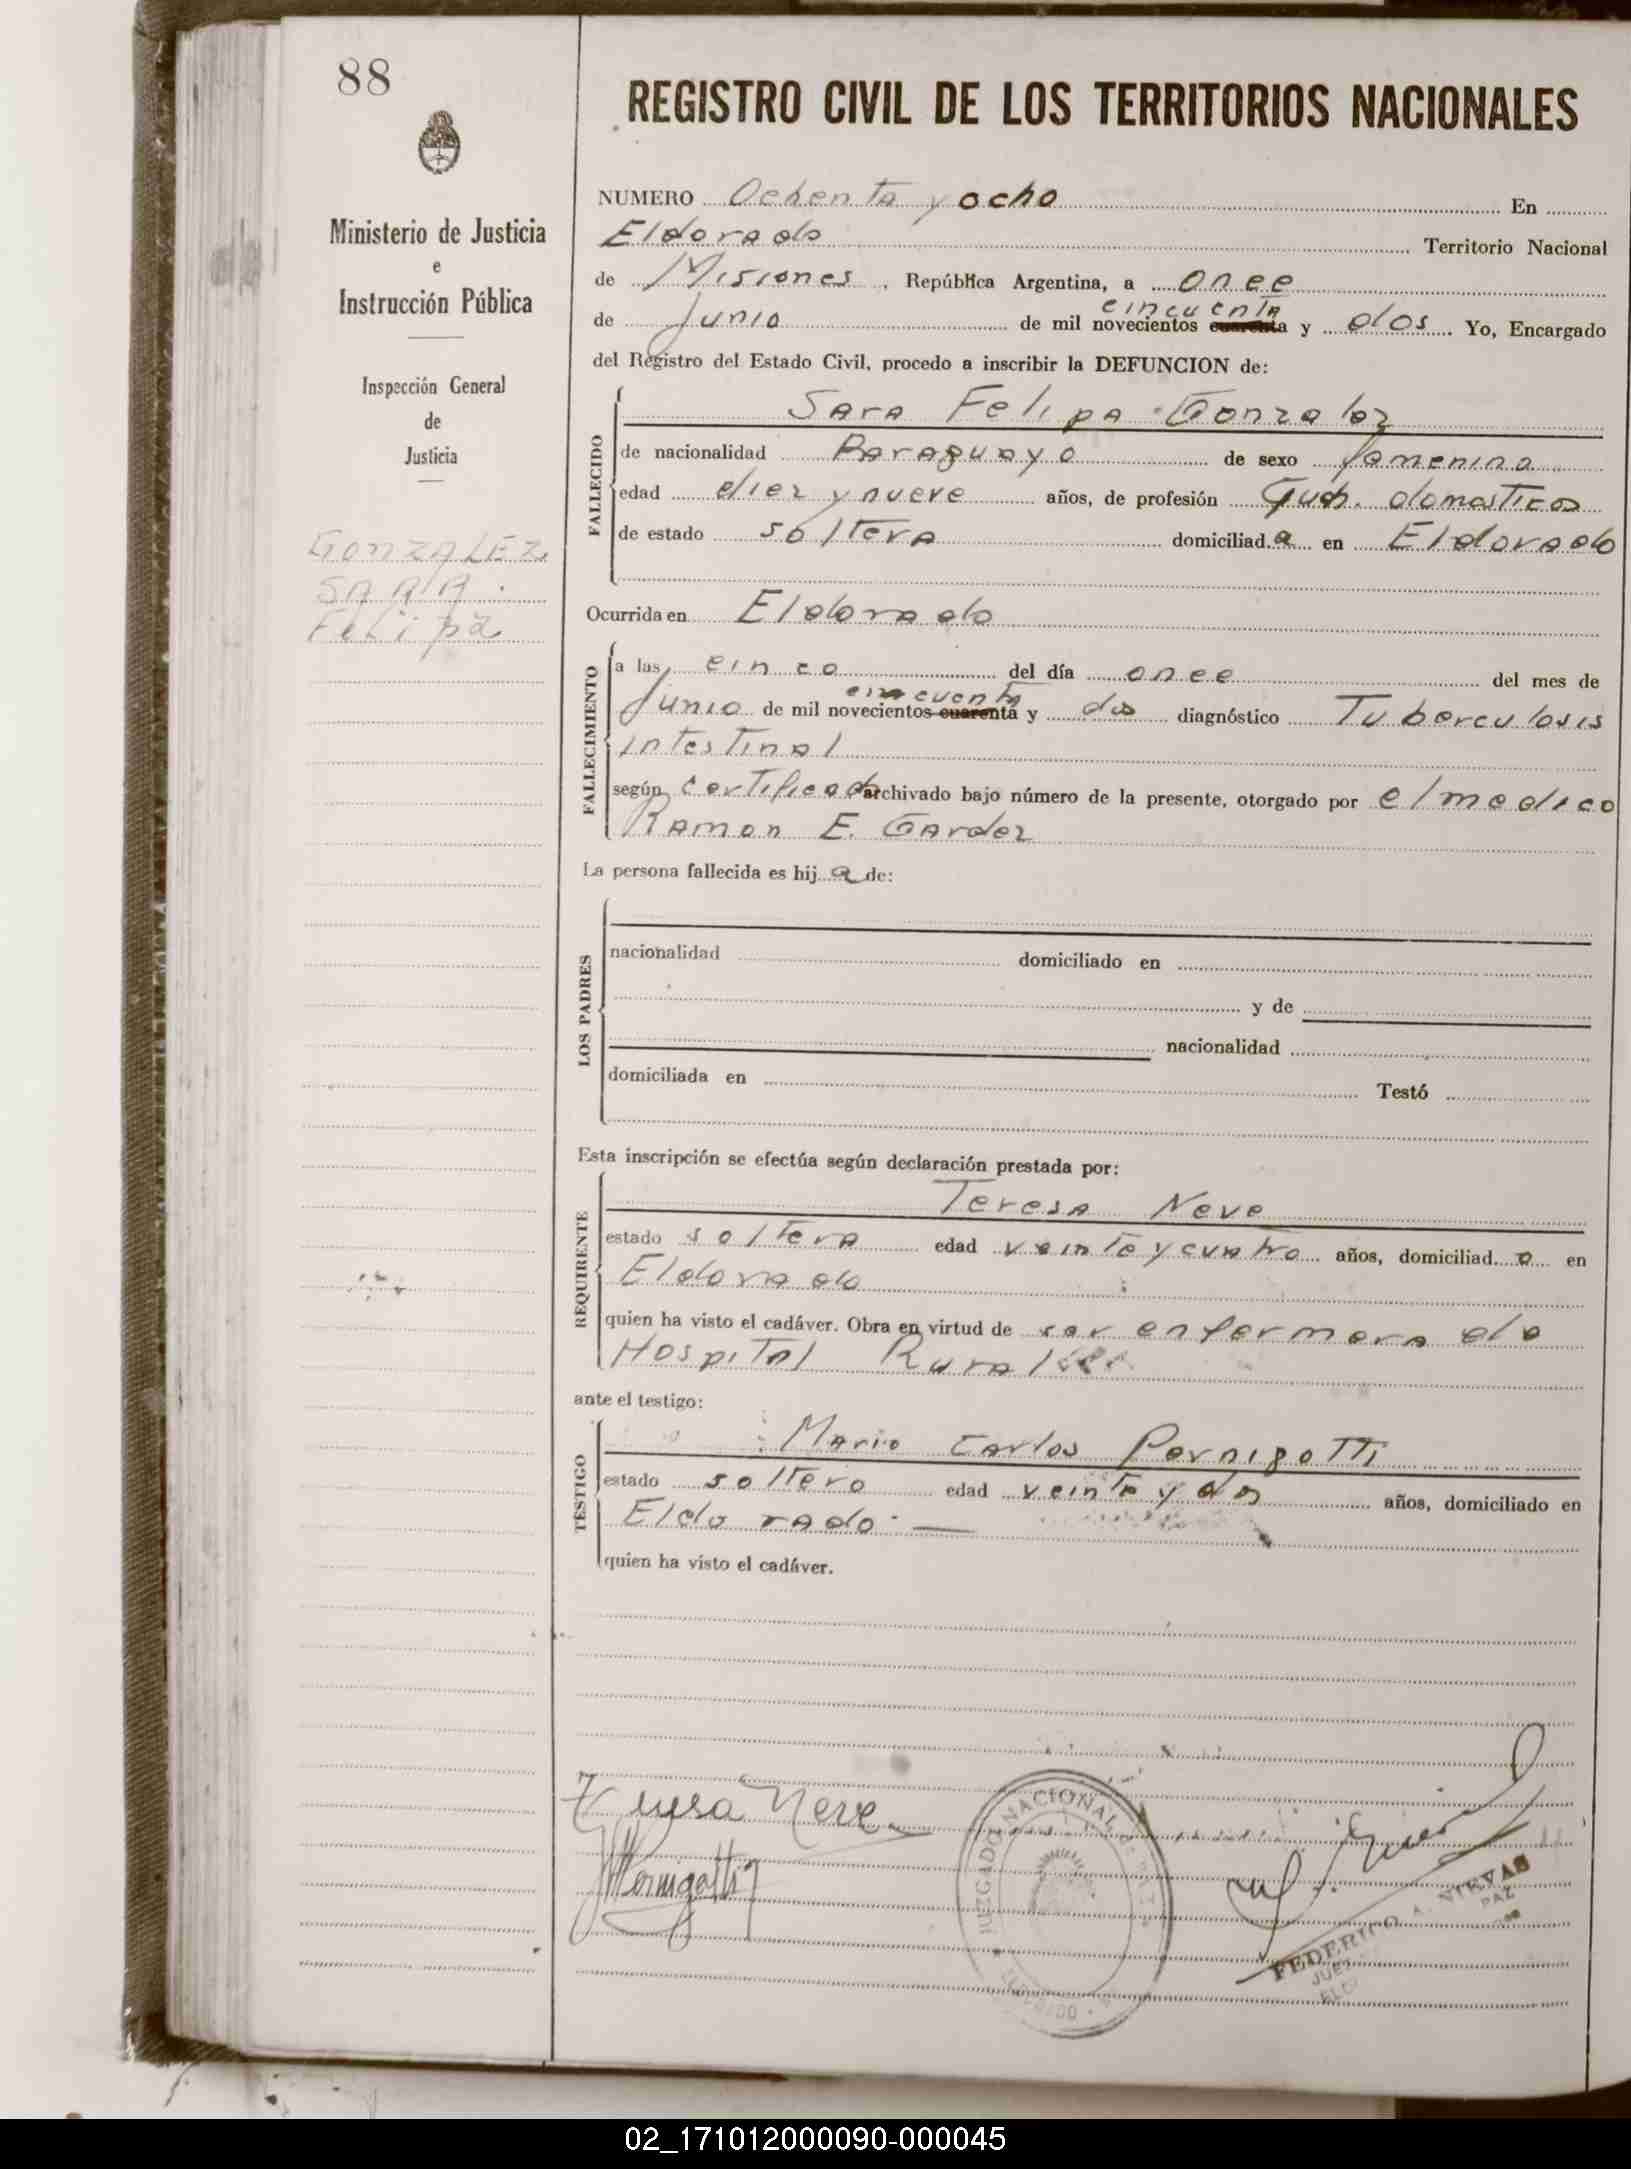 88
REGISTRO CIVIL DE LOS TERRITORIOS NACIONALES
Ministerio de Justicia
e
Instrucción Pública
Inspección General
de
Justicia
GONZALEZ
SARA
Felipa
NUMERO Ochenta y ocho En
Eldorado Territorio Nacional
de Misiones, República Argentina, a once
cincuenta
de Junio de mil novecientos cuarenta y dos Yo, Encargado
del Registro del Estado Civil, procedo a inscribir la DEFUNCION de:
FALLECIDO
Sara Felipa Gonzalez
de nacionalidad Paraguaya de sexo femenino
edad diez y nueve años, de profesión Queh. domesticos
de estado soltera domiciliad a en Eldorado
Ocurrida en Eldorado
FALLECIMIENTO
a las cinco del día once del mes de
cincuenta
Junio de mil novecientos cuarenta y dos diagnóstico Tuberculosis
intestinal
según certificado archivado bajo número de la presente, otorgado por el medico
Ramon E. Gardez
La persona fallecida es hij a de:
LOS PADRES
nacionalidad domiciliado en
y de
nacionalidad
domiciliada en Testó
Esta inscripción se efectúa según declaración prestada por:
REQUIRENTE
Teresa Neve
estado soltera edad veinte y cuatro años, domiciliad a en
Eldorado
quien ha visto el cadáver. Obra en virtud de ser enfermera de
Hospital Rural
ante el testigo:
TESTIGO
Mario Carlos Pernigotti
estado soltero edad veinte y dos años, domiciliado en
Eldorado. —
quien ha visto el cadáver.
Teresa Neve
Pernigotti
JUZGADO NACIONAL DE PAZ
ELDORADO
FEDERICO A. NIEVAS
JUEZ PAZ
02_171012000090-000045